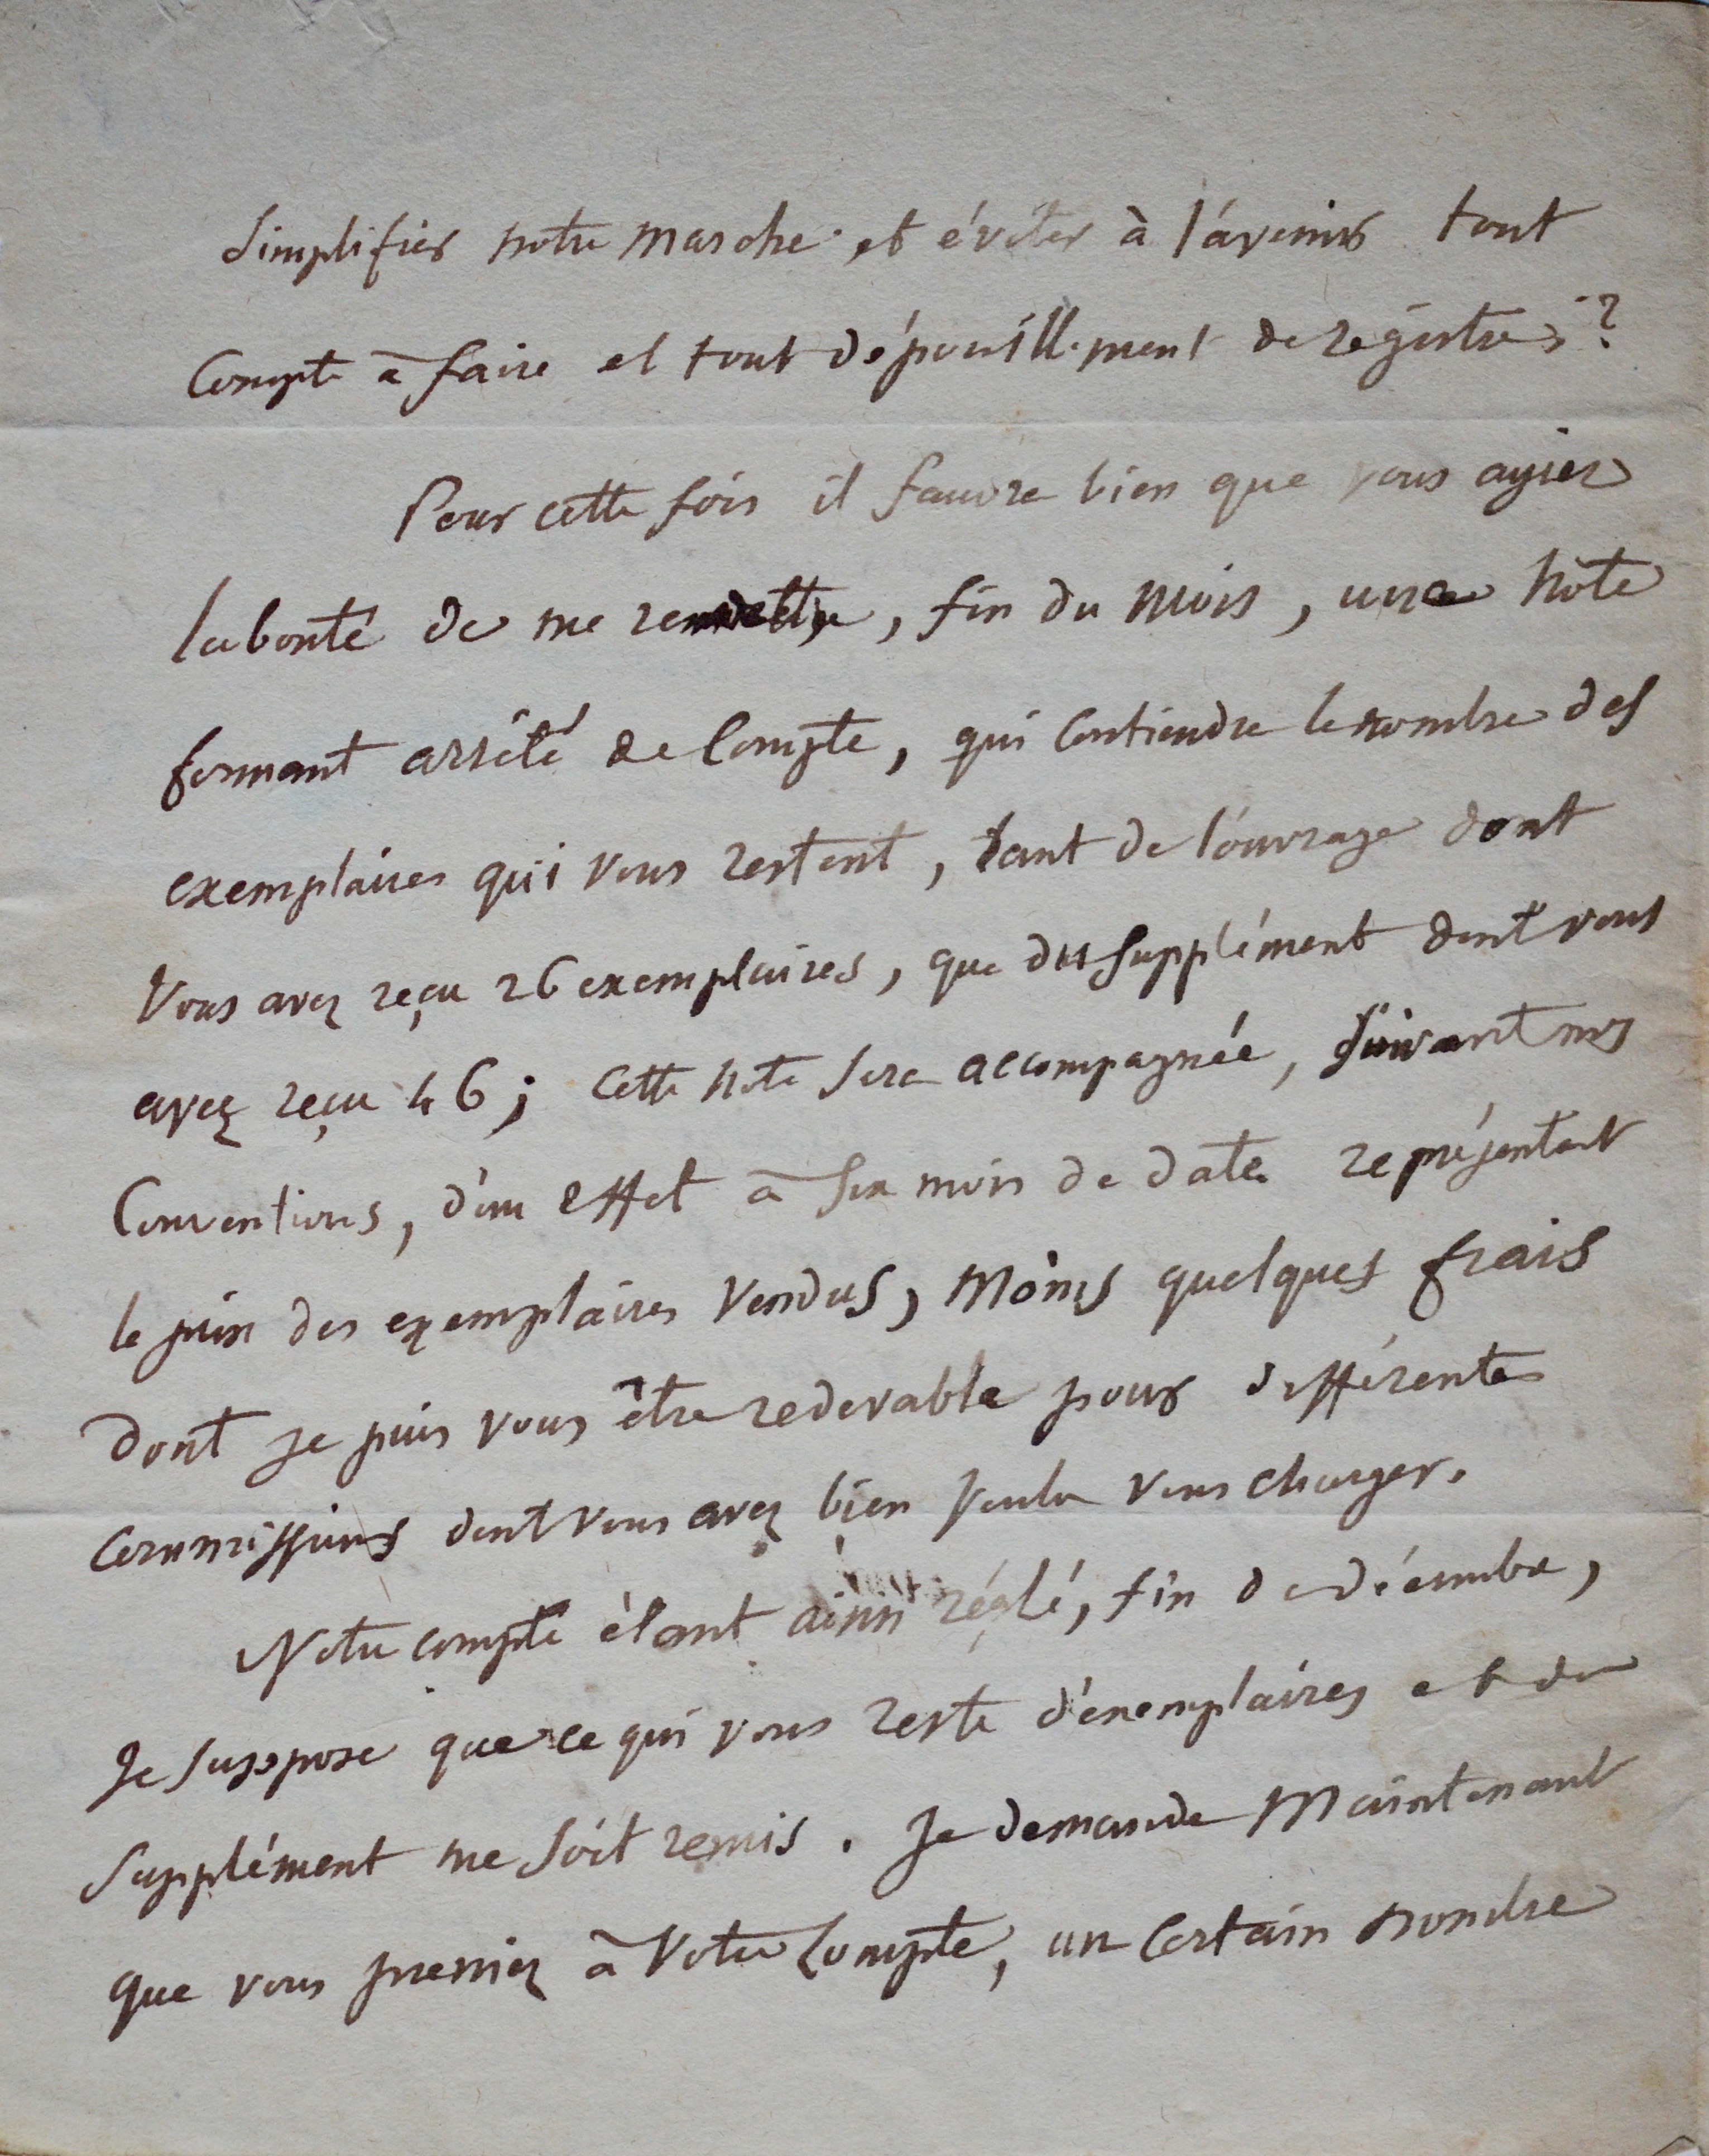 simplifier notre marche et éviter à l'avenir tout
compte à faire et tout dépouillement de registres ?
Pour cette fois il faudra bien que vous ayiez
la bonté de me remettre, fin du mois, une note
formant arrêté de compte, qui contiendra le nombre des
exemplaires qui vous restent, tant de l'ouvrage dont
vous avez reçu 26 exemplaires, que du supplément dont vous
avez reçu 46 ; cette note sera accompagnée, suivant nos
conventions, d'un effet à six mois de date représentant
le prix des exemplaires vendus, moins quelques frais
dont je puis vous être redevable pour différentes
commissions dont vous avez bien voulu vous charger.
Notre compte étant ainsi réglé, fin de décembre,
je suppose que ce qui vous reste d'exemplaires et du
supplément me soit remis. Je demande maintenant
que vous preniez à votre compte, un certain nombre